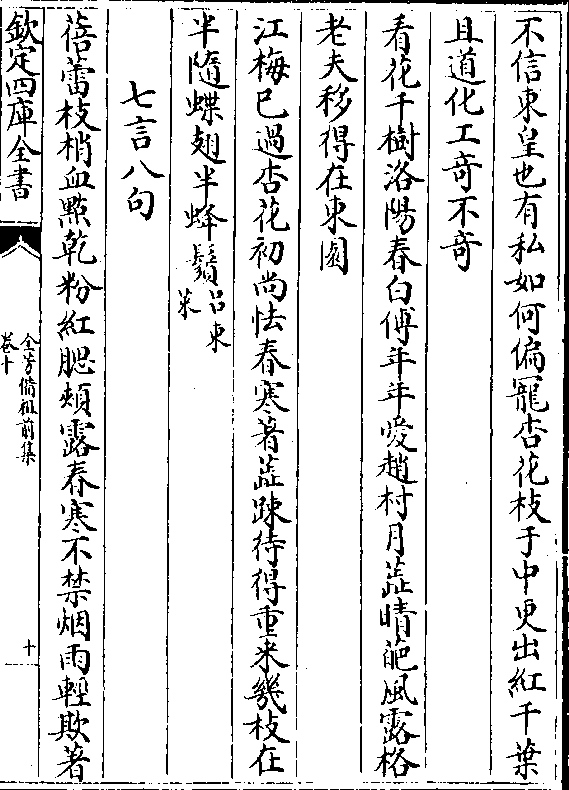 不信東皇也有私如何偏寵杏花枝于中更出紅千葉
且道化工奇不奇
看花千樹洛陽春白傅年年愛趙村月蘂晴葩風露格
老夫移得在東園
江梅已過杏花初尚怯春寒著蘂踈待得重来幾枝在
半隨蝶翅半蜂鬚吕東莱
七言八句
蓓蕾枝梢血㸃乾粉紅腮頰露春寒不禁烟雨輕欺著
欽定四庫全書
全芳備祖前集
卷十
十